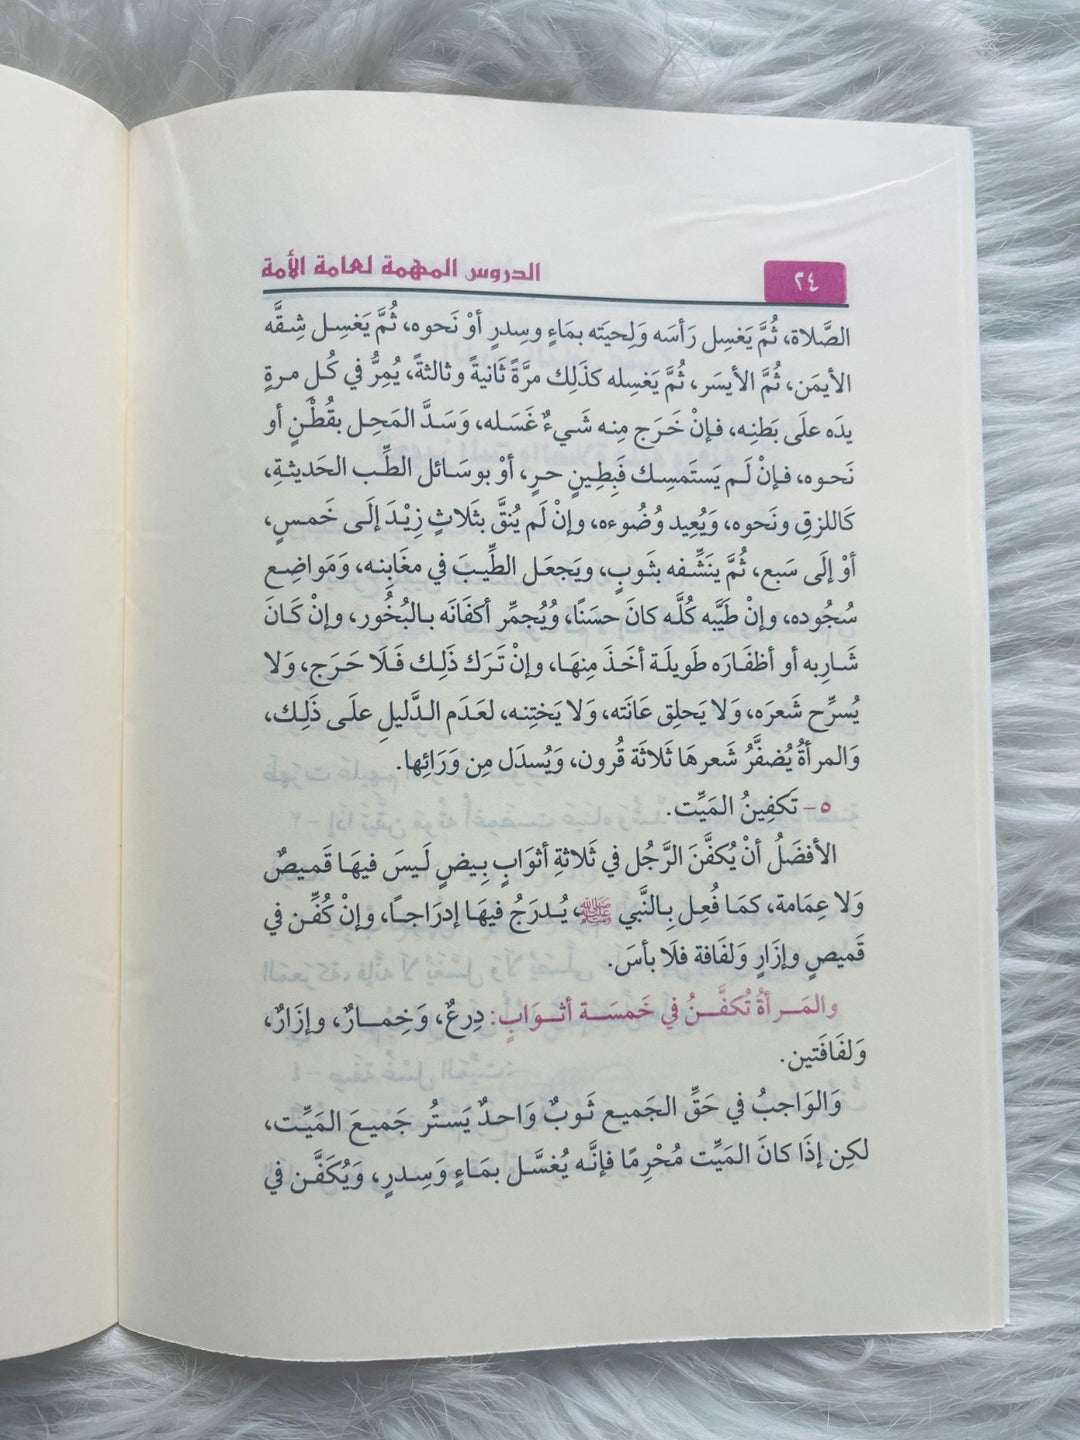 ٢٤
الدروس المهمة لعامة الأمة
الصَّلاة، ثُمَّ يَغسِل رَأسَه وَلِحيَته بمَاءٍ وسِدرٍ أوْ نَحوه، ثُمَّ يَغسِل شِقَّه
الأيمَن، ثُمَّ الأيسَر، ثُمَّ يَغسِله كذَلِك مرَّةً ثَانيةً وثالثةً، يُمِرُّ في كُل مرةٍ
يدَه علَى بَطنِه، فإنْ خَرَج مِنه شَيءٌ غَسَله، وَسَدَّ المَحِل بقُطْنٍ أو
نَحوه، فإنْ لَم يَستَمسِك فَبِطِينٍ حرٍ، أوْ بوسَائل الطِّب الحَديثةِ،
كَاللزقِ ونَحوه، وَيُعِيد وُضُوءه، وإنْ لَم يُنقَّ بثَلاثٍ زِيْدَ إلَى خَمسٍ،
أوْ إلَى سَبع، ثُمَّ ينَشِّفه بثَوبٍ، ويَجعَل الطِّيبَ في مغَابِنه، وَمَواضِع
سُجُوده، وإنْ طَيَّبه كُلَّه كانَ حسَنًا، وُيُجمِّر أكفَانَه بالبُخُور، وإنْ كَانَ
شَارِبه أو أظفَارَه طَويلَة أخَذَ مِنهَا، وإنْ تَرَك ذَلِك فَلَا حَرَج، وَلا
يُسرِّح شَعرَه، وَلا يَحلِق عَانَته، وَلا يَختِنه، لعَدَم الدَّليلِ علَى ذَلِك،
وَالمرأةُ يُضفَّرُ شَعرهَا ثَلاثَة قُرون، وَيُسدَل مِن وَرَائِها.
٥- تَكفِينُ المَيِّت.
الأفضَلُ أنْ يُكفَّنَ الرَّجُل في ثَلاثةِ أثوَابٍ بِيضٍ لَيسَ فيهَا قَميصٌ
وَلا عِمَامة، كمَا فُعِل بِالنَّبي ﷺ، يُدرَجُ فيهَا إدرَاجًا، وإنْ كُفِّن في
قَميصٍ وإزَارٍ وَلفَافة فلَا بأسَ.
والمَرأةُ تُكفَّنُ في خَمسَة أثوَابٍ: دِرعٌ، وَخِمارٌ، وإزَارٌ،
وَلفَافَتين.
وَالوَاجبُ في حَقِّ الجَميع ثَوبٌ وَاحدٌ يَستُر جَميعَ المَيِّت،
لكِن إذَا كانَ المَيِّت مُحْرِمًا فإنَّه يُغسَّل بمَاءٍ وَسِدرٍ، وَيُكَفَّن في